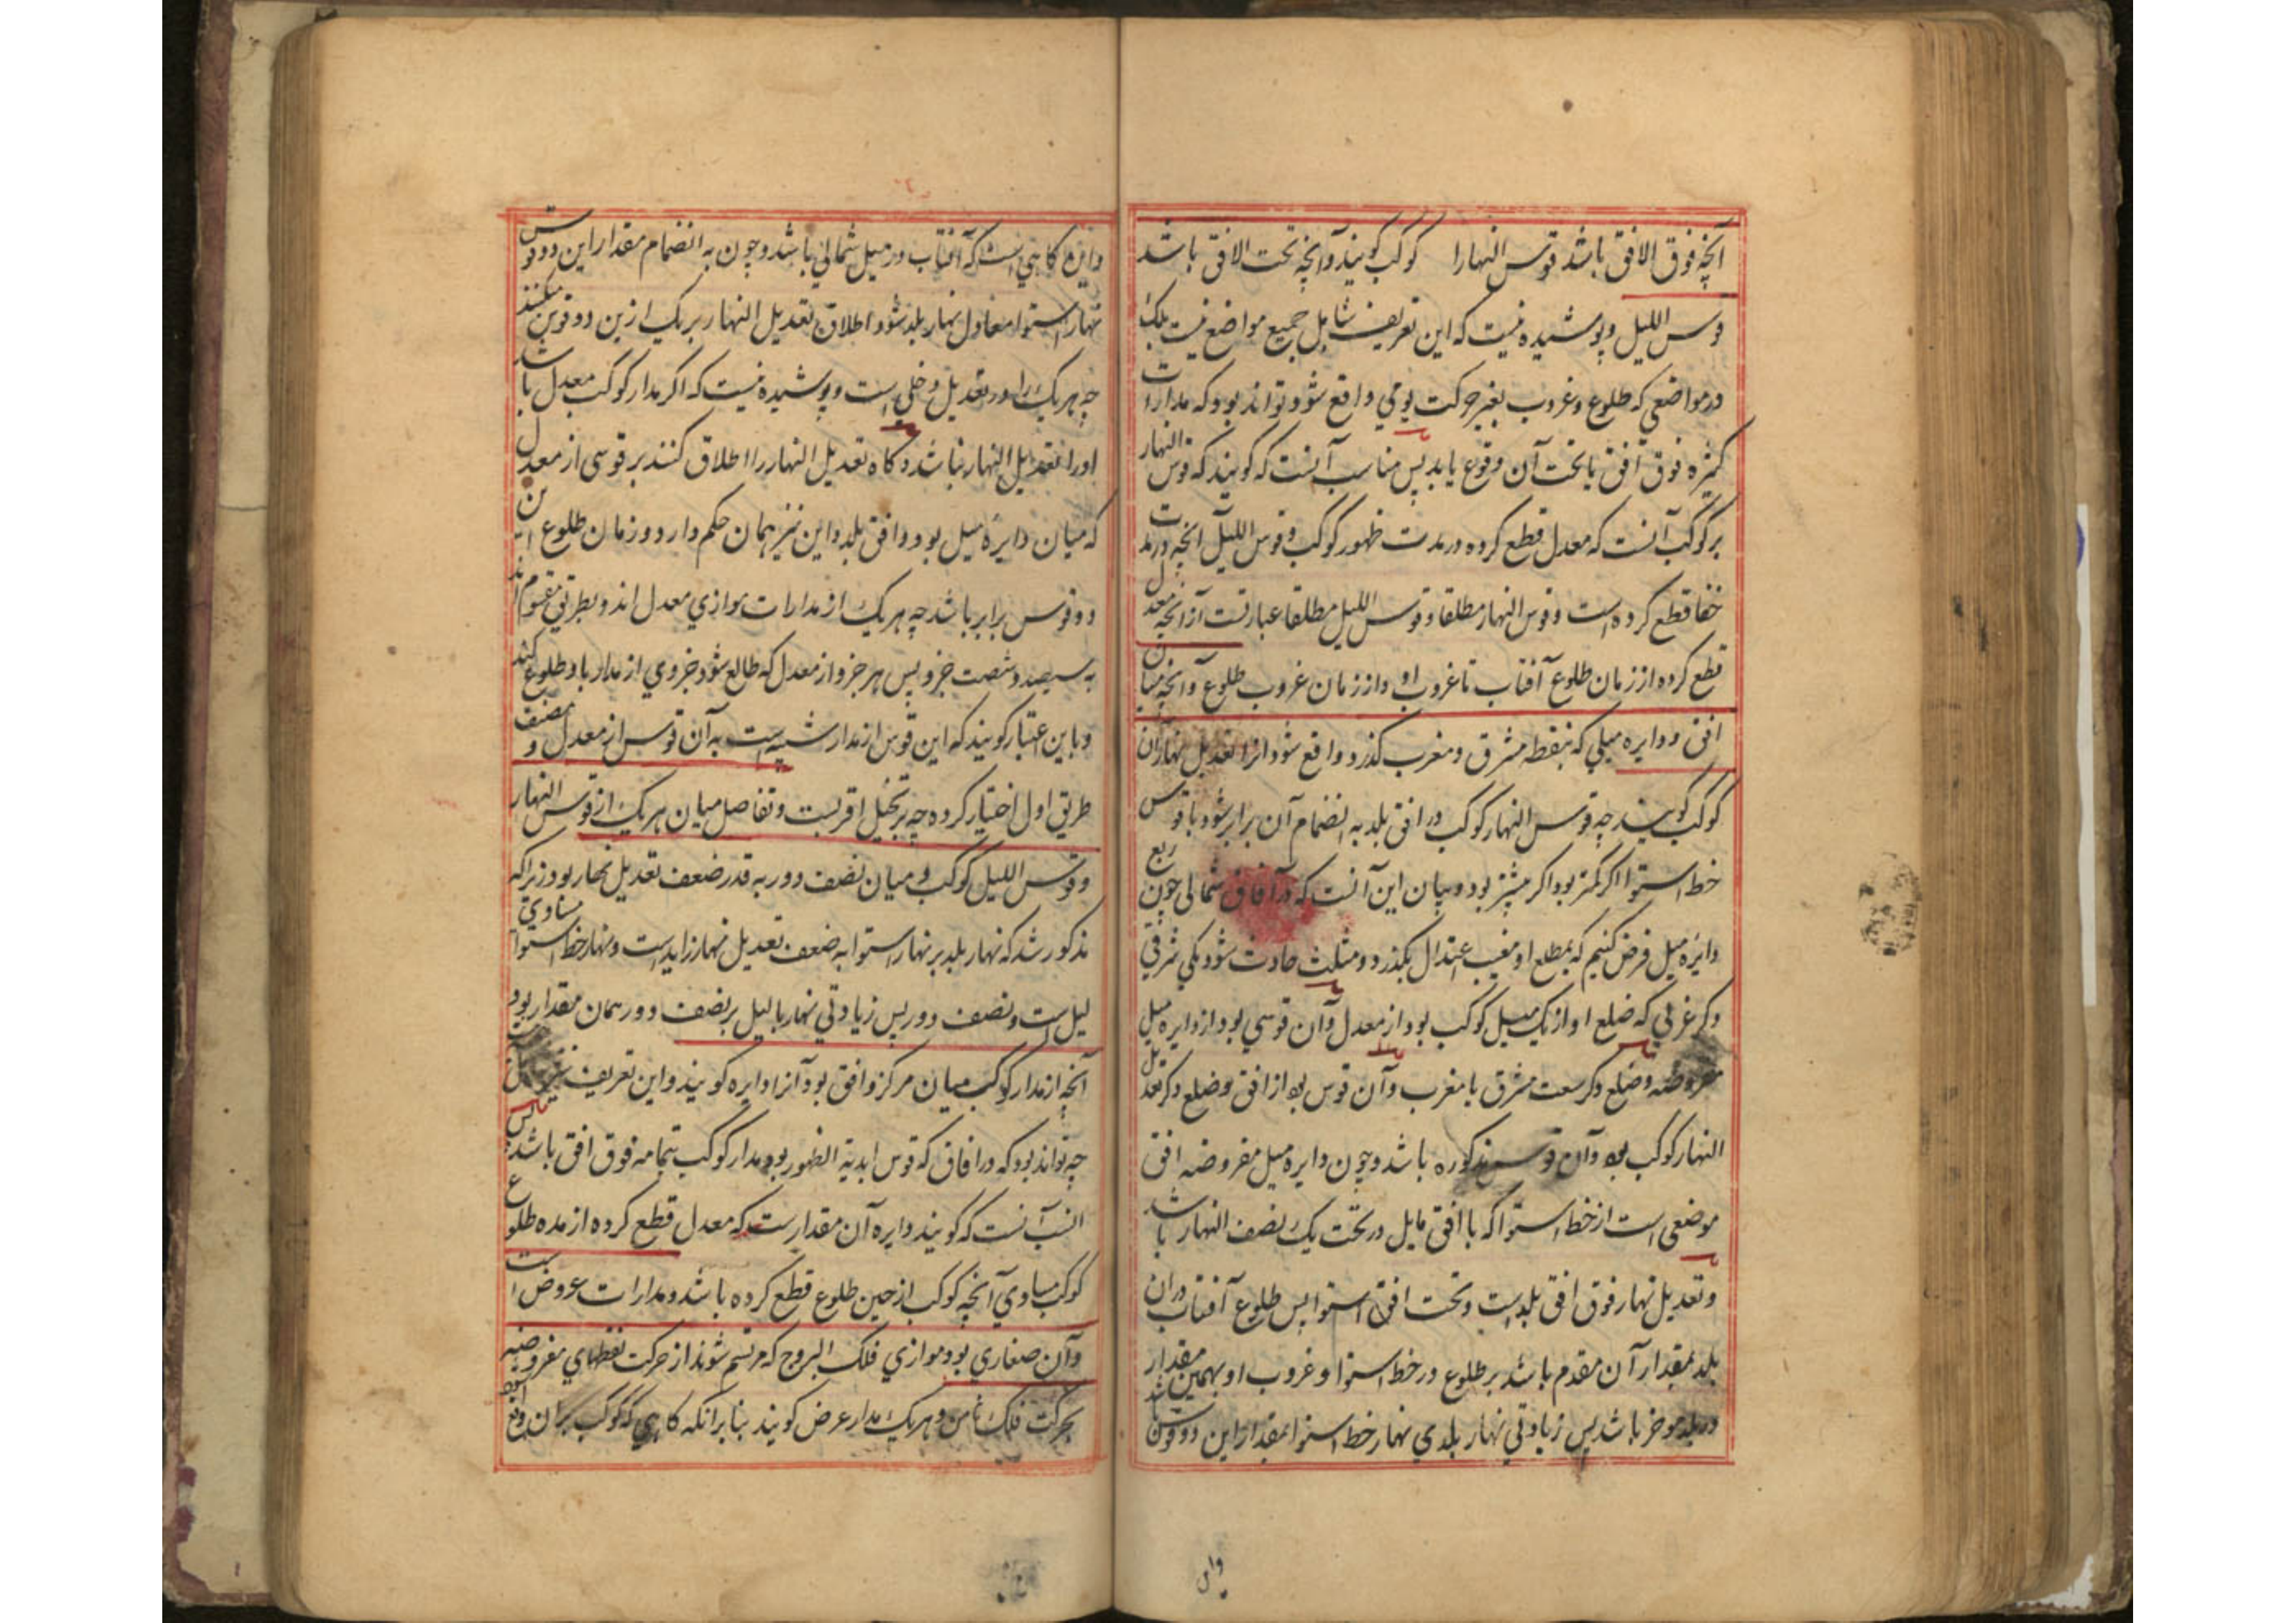 آنچه فوق الافق باشد قوس النهارا کوکب کویند وآنچه تحت الافق باشد
قوس اللیل وپوشیده نیست که این تعریف شامل جمیع مواضع نیست بلکه
درمواضعی که طلوع وغروب بغیر حرکت یومی واقع شود تواند بود که مدارات
کثیره فوق افق یا تحت آن وقوع یابد پس مناسب آنست که کویند که قوس النهار
هر کوکب آنست که معدل قطع کرده در مدت ظهور کوکب وقوس اللیل آنچه در مدت
خفا قطع کرده است وقوس النهار مطلقا وقوس اللیل مطلقا عبارتست ازآنچه معدل
قطع کرده از زمان طلوع آفتاب تا غروب او واز زمان غروب طلوع وآنچه میان
افق ودایره میلی که بنقطه مشرق ومغرب کذرد واقع شود انرا تعدیل نهار آن
کوکب کویند چه قوس النهار کوکب در افق بلد به انضمام آن برابر شود با قوس
خط استوا اکر کمتر بود اکر بیشتر بود وبیان این آنست که در آفاق شمالی چون ربع
دایره میل فرض کنیم که بمطلع او مغیب اعتدال بکذرد ومثلث حادث شود یکی شرقی
وکر غربی که ضلع او از یک میل کوکب بود از معدل وآن قوسی بود از دایره میل
مفروضه وضلع وکر سعت مشرق یا مغرب وآن قوس بود از افق وضلع وکر تعدیل
النهار کوکب بود وآن قوس مذکوره باشد وچون دایره میل مفروضه افق
موضعی است از خط استوا که با افق مایل در تحت یک نصف النهار باشد
وتعدیل نهار فوق افق بلد است وتحت افق استوا پس طلوع آفتاب دران
بلد بمقدار آن مقدم باشد بر طلوع در خط استوا وغروب او بهمین مقدار
در بلد موخر باشد پس زیادتی نهار بلدی نهار خط استوا بمقدار این دو قوس باشد
واین
واین کاهی است که آفتاب در میل شمالی باشد وچون به انضمام مقدار این دو قوس
نهار استوا معادل نهار بلد شود اطلاق تعدیل النهار بر یک ازین دو قوس میکنند
چه هریک را در تعدیل دخلی است وپوشیده نیست که اکر مدار کوکب معدل باشد
اورا تعدیل النهار نباشد وکاه تعدیل النهار را اطلاق کنند بر قوسی از معدل
که میان دایره میل بود وافق بلد واین نیز همان حکم دارد وزمان طلوع این
دو قوس برابر باشد چه هریک از مدارات موازی معدل اند وبطریق مقسوم اند
به سیصد وشصت جزو پس هر جزو از معدل که طالع شود جزوی از مدار با او طلوع کند
وباین اعتبار کویند که این قوس از مدار شبیه است به آن قوس از معدل ومصنف
طریق اول اختیار کرده چه بتخیل اقربست وتفاصل میان هریک از قوس النهار
وقوس اللیل کوکب ومیان نصف دور به قدر ضعف تعدیل نهار بود زیراکه
مذکور شد که نهار بلد بر نهار استوا به ضعف تعدیل نهار زاید است ونهار خط استوا مساوی
لیل است ونصف دور پس زیادتی نهار با لیل بر نصف دور همان مقدار بود
آنچه از مدار کوکب میان مرکز وافق بود آنرا دایره کویند واین تعریف نیز
چه تواند بود که در افاق که قوس ابدیة الظهور بود مدار کوکب بتمامه فوق افق باشد پس
انسب آنست که کویند دایره آن مقدار است که معدل قطع کرده از مده طلوع
کوکب مساوی آنچه کوکب از حین طلوع قطع کرده باشد ومدارات عروض است
وآن صغاری بود موازی فلک البروج که مرتسم شوند از حرکت نقطهای مفروضه
بحرکت فلک ثامن وهریک مدار عرض کویند بنابرانکه کاهی که کوکب بران واقع